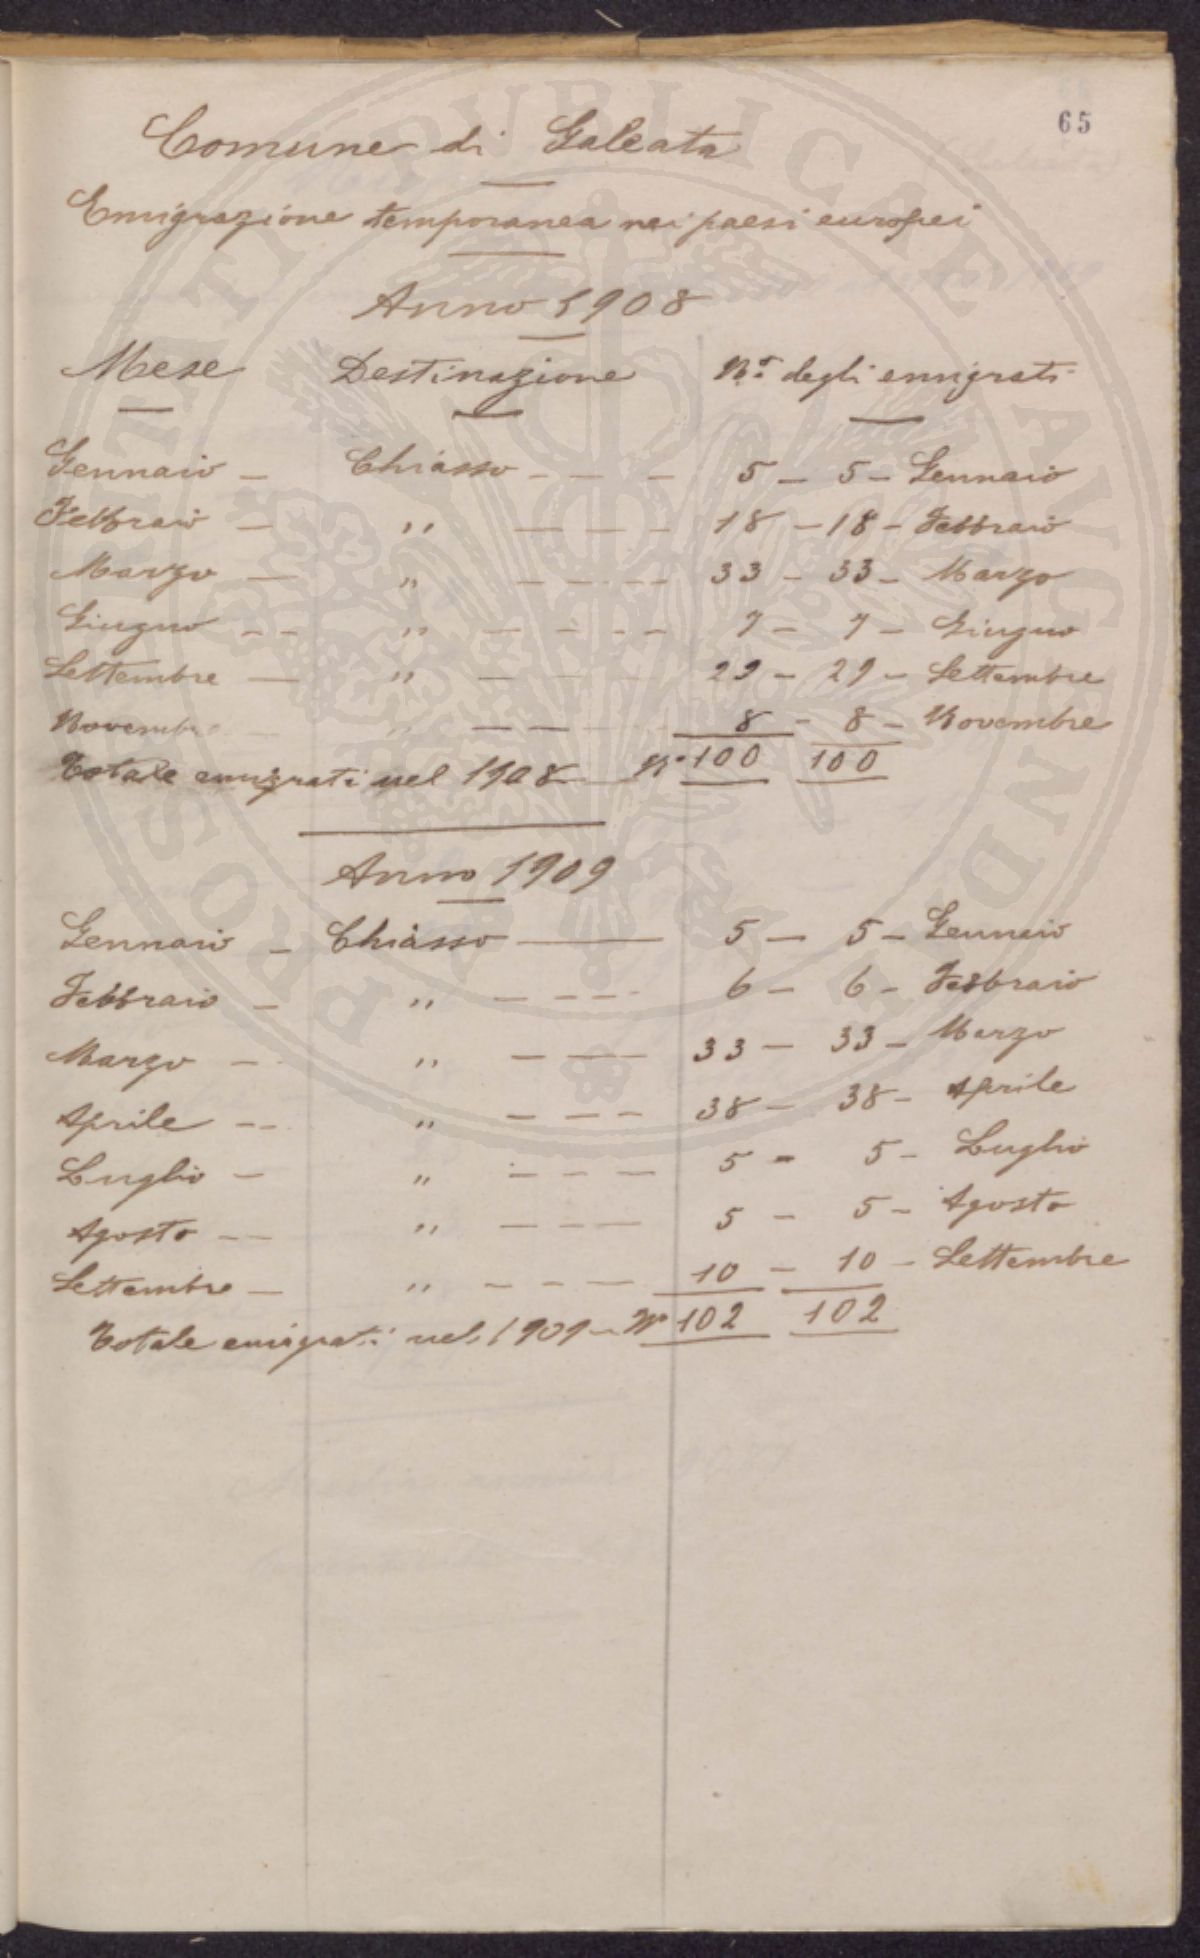 65
Comune di Galeata
Emigrazione temporanea nei paesi europei
Anno 1908
Mese Destinazione N.° degli emigrati
Gennaio — Chiasso - - - 5 — 5 — Gennaio
Febbraio — " - - - - 18 — 18 — Febbraio
Marzo — " - - - - 33 — 33 — Marzo
Giugno - - " - - - - 7 — 7 — Giugno
Settembre — " - - - - 29 — 29 — Settembre
Novembre " - - - 8 — 8 — Novembre
Totale emigrati nel 1908 N° 100 100
Anno 1909
Gennaio — Chiasso — 5 — 5 — Gennaio
Febbraio — " - - - - 6 — 6 — Febbraio
Marzo — " - - - 33 — 33 — Marzo
Aprile - - " - - - 38 — 38 — Aprile
Luglio — " - - - - 5 — 5 — Luglio
Agosto - - " - - - - 5 — 5 — Agosto
Settembre — " - - - - 10 — 10 — Settembre
Totale emigrati nel 1909 — N° 102 102